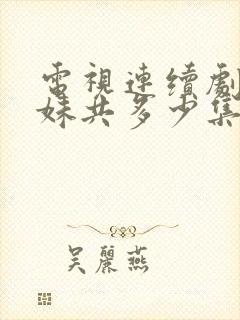 電視連續劇
妹共多少集
吳麗燕